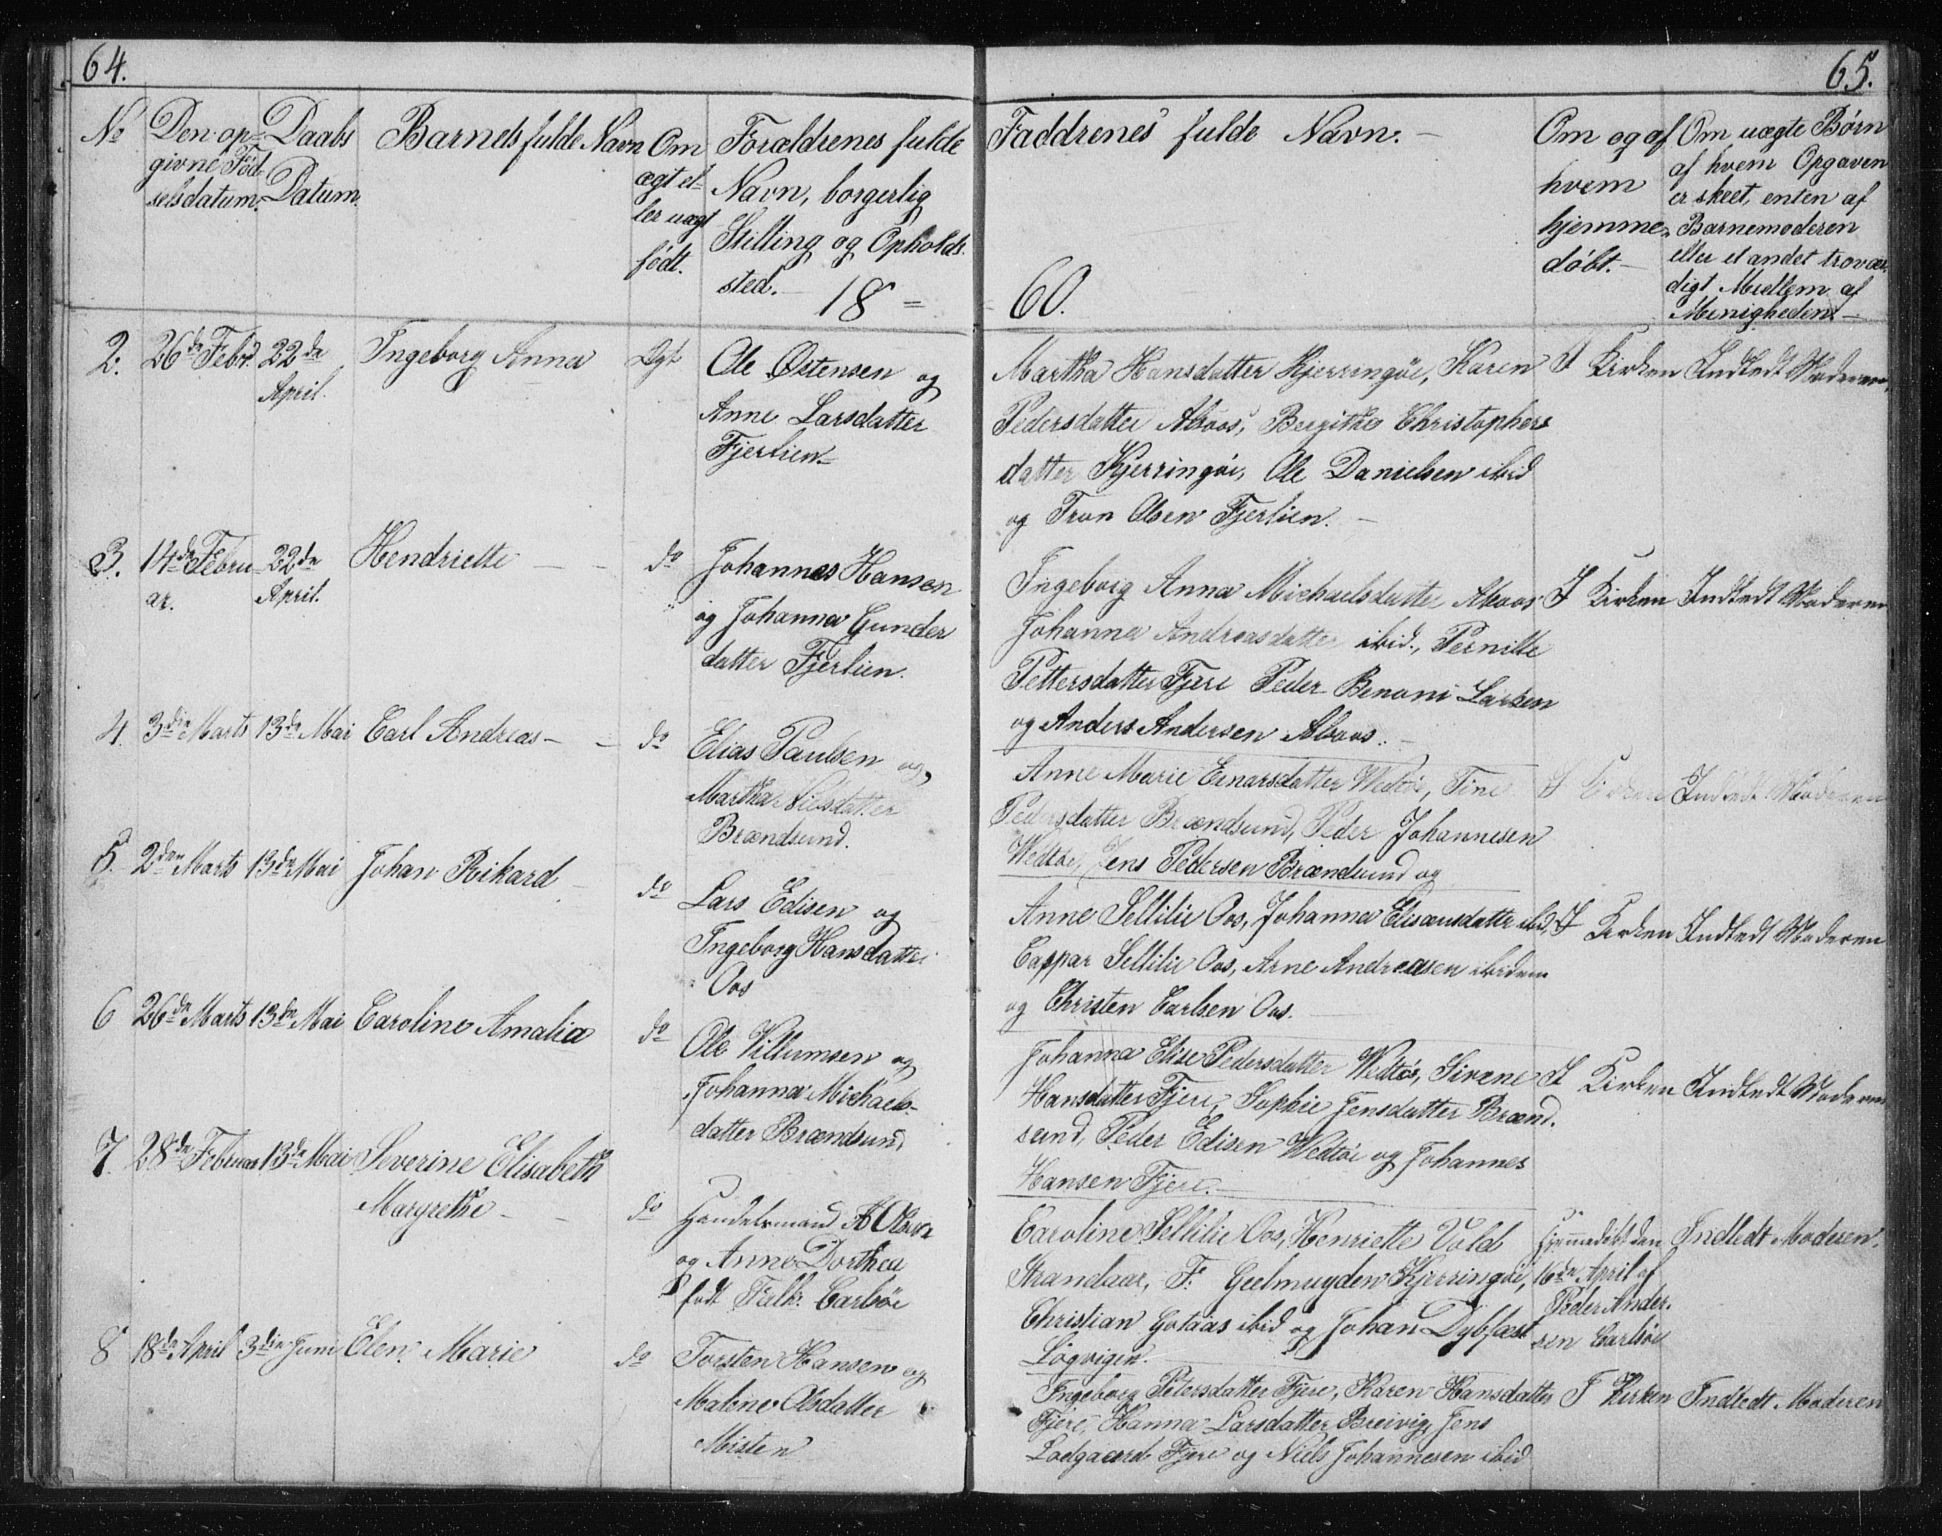 64.
65.
No
Den op-
givne Fød-
selsdatum.
Daabs
Datum.
Barnets fulde Navn
Om
ægt el-
ler uægt
født.
Forældrenes fulde
Navn, borgerlig
Stilling og Opholds
sted.
18
60.
Faddrenes fulde Navn.
Om og af
hvem
hjemme-
døbt.
Om uægte Børn
af hvem Opgaven
er skeet, enten af
Barnemoderen
eller et andet trovær
digt Medlem af
Menigheden.
2. 26de Febr. 22de
April.
Ingeborg Anna
Ægt
Ole Østensen og
Anne Larsdatter
Fjerlien
Martha Hansdatter Kjerringøe, Karen
Pedersdatter Alsoos, Bergithe Christophers
datter Kjerringøi, Ole Danielsen ibid
og Tron Olsen Fjerlien.
I Kirken
Indledt Moderen
3. 14de Febru
ar.
22de
April.
Hendriette
do
Johannes Hansen
og Johanna Gunder
datter Fjerlien.
Ingeborg Anna Michaelsdatter Alsoos
Johanna Andreasdatter ibid., Pernille
Pettersdatter Fjere Peder Benoni Larsen
og Anders Andersen Alsoos.
I Kirken
Indledt Moderen
4. 3die Marts 13de Mai Carl Andreas
do
Elias Paulsen og
Martha Nilsdatter
Brændsund.
Anne Marie Einarsdatter Wedtøe, Tine
Pedersdatter Brændsund, Peder Johannesen
Wedtøe, Jens Pedersen Brændsund og
I Kirken
Indledt Moderen
5. 2den Marts 13de Mai Johan Rikard
do
Lars Edisen og
Ingeborg Hansdatter
Oos
Anne Sellilie Oos, Johanna Elisæusdatter ibid,
Caspar Sellilie Oos, Arne Andreasen ibidem
og Christen Carlsen Oos.
I Kirken
Indledt Moderen
6 26de Marts 13de Mai Caroline Amalia
do
Ole Villumsen og
Johanna Michaels-
datter Brændsund
Johanna Elise Pedersdatter Wedtøe, Sirene
Hansdatter Fjere, Sophie Jensdatter Brænd-
sund, Peder Edisen Wedtøe og Johannes
Hansen Fjere.
I Kirken
Indledt Moderen
7. 28de Februar 13de Mai Severine Elisabeth
Margrethe
do
Handelsmand A Olsen
og Anne Dorthea
født Falk Carlsøe
Caroline Sellilie Oos, Henriette Vold
Strandaae, F. Geelmuyden Kjerringøi,
Christian Gotaas ibid og Johan Dybfæst
Løgvigen.
Hjemmedøbt den
16de April af
Peder Ander-
sen Carlsøe
Indledt Moderen.
8 18de April 3die Juni Elen Marie
do
Torsten Hansen og
Malene Olsdatter
Misten
Ingeborg Petersdatter Fjere, Karen Hansdatter
Fjere, Hanna Larsdatter Breivig, Jens
Lodgaard Fjere og Niels Johannesen ibid
I Kirken
Indledt Moderen